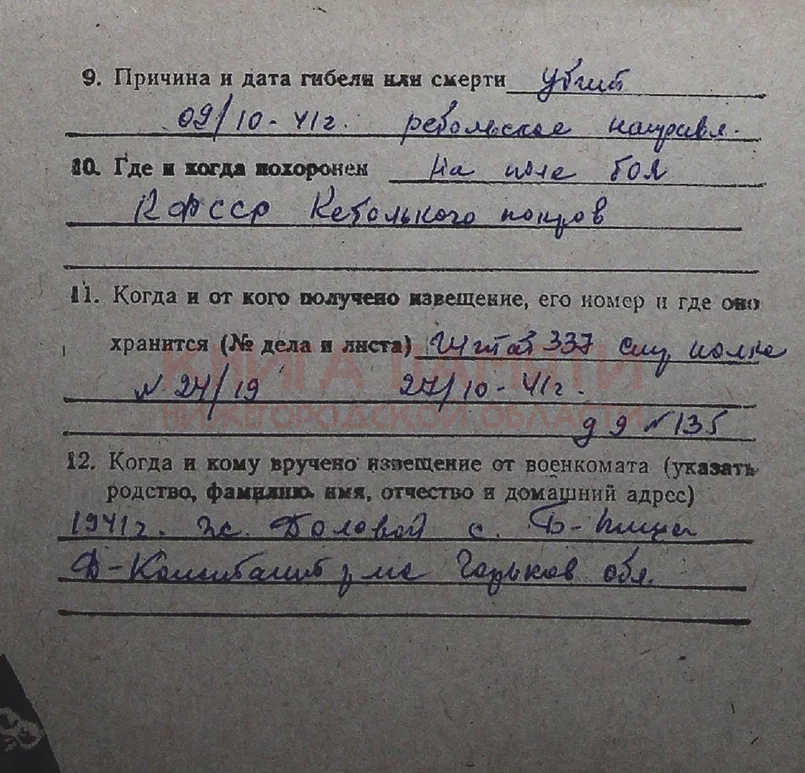 9. Причина и дата гибели или смерти убит
09/10-41г. ребольское направл.
10. Где и когда похоронен на поле боя
КФССР Кеболького напров
11. Когда и от кого получено извещение, его номер и где оно
хранится (№ дела и листа) Штаб 337 полка
КНИГА ПАМЯТИ
N 24/19 27/10-41г.
НИЖЕГОРОДСКОЙ ОБЛАСТИ
д 9 N 135
12. Когда и кому вручено извещение от военкомата (указать
родство, фамилию, имя, отчество и домашний адрес)
1941г. с. Б-
Д-Константин р на Горьков обл.